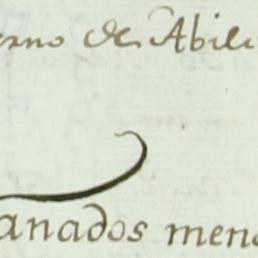 erno de Abili
anados men